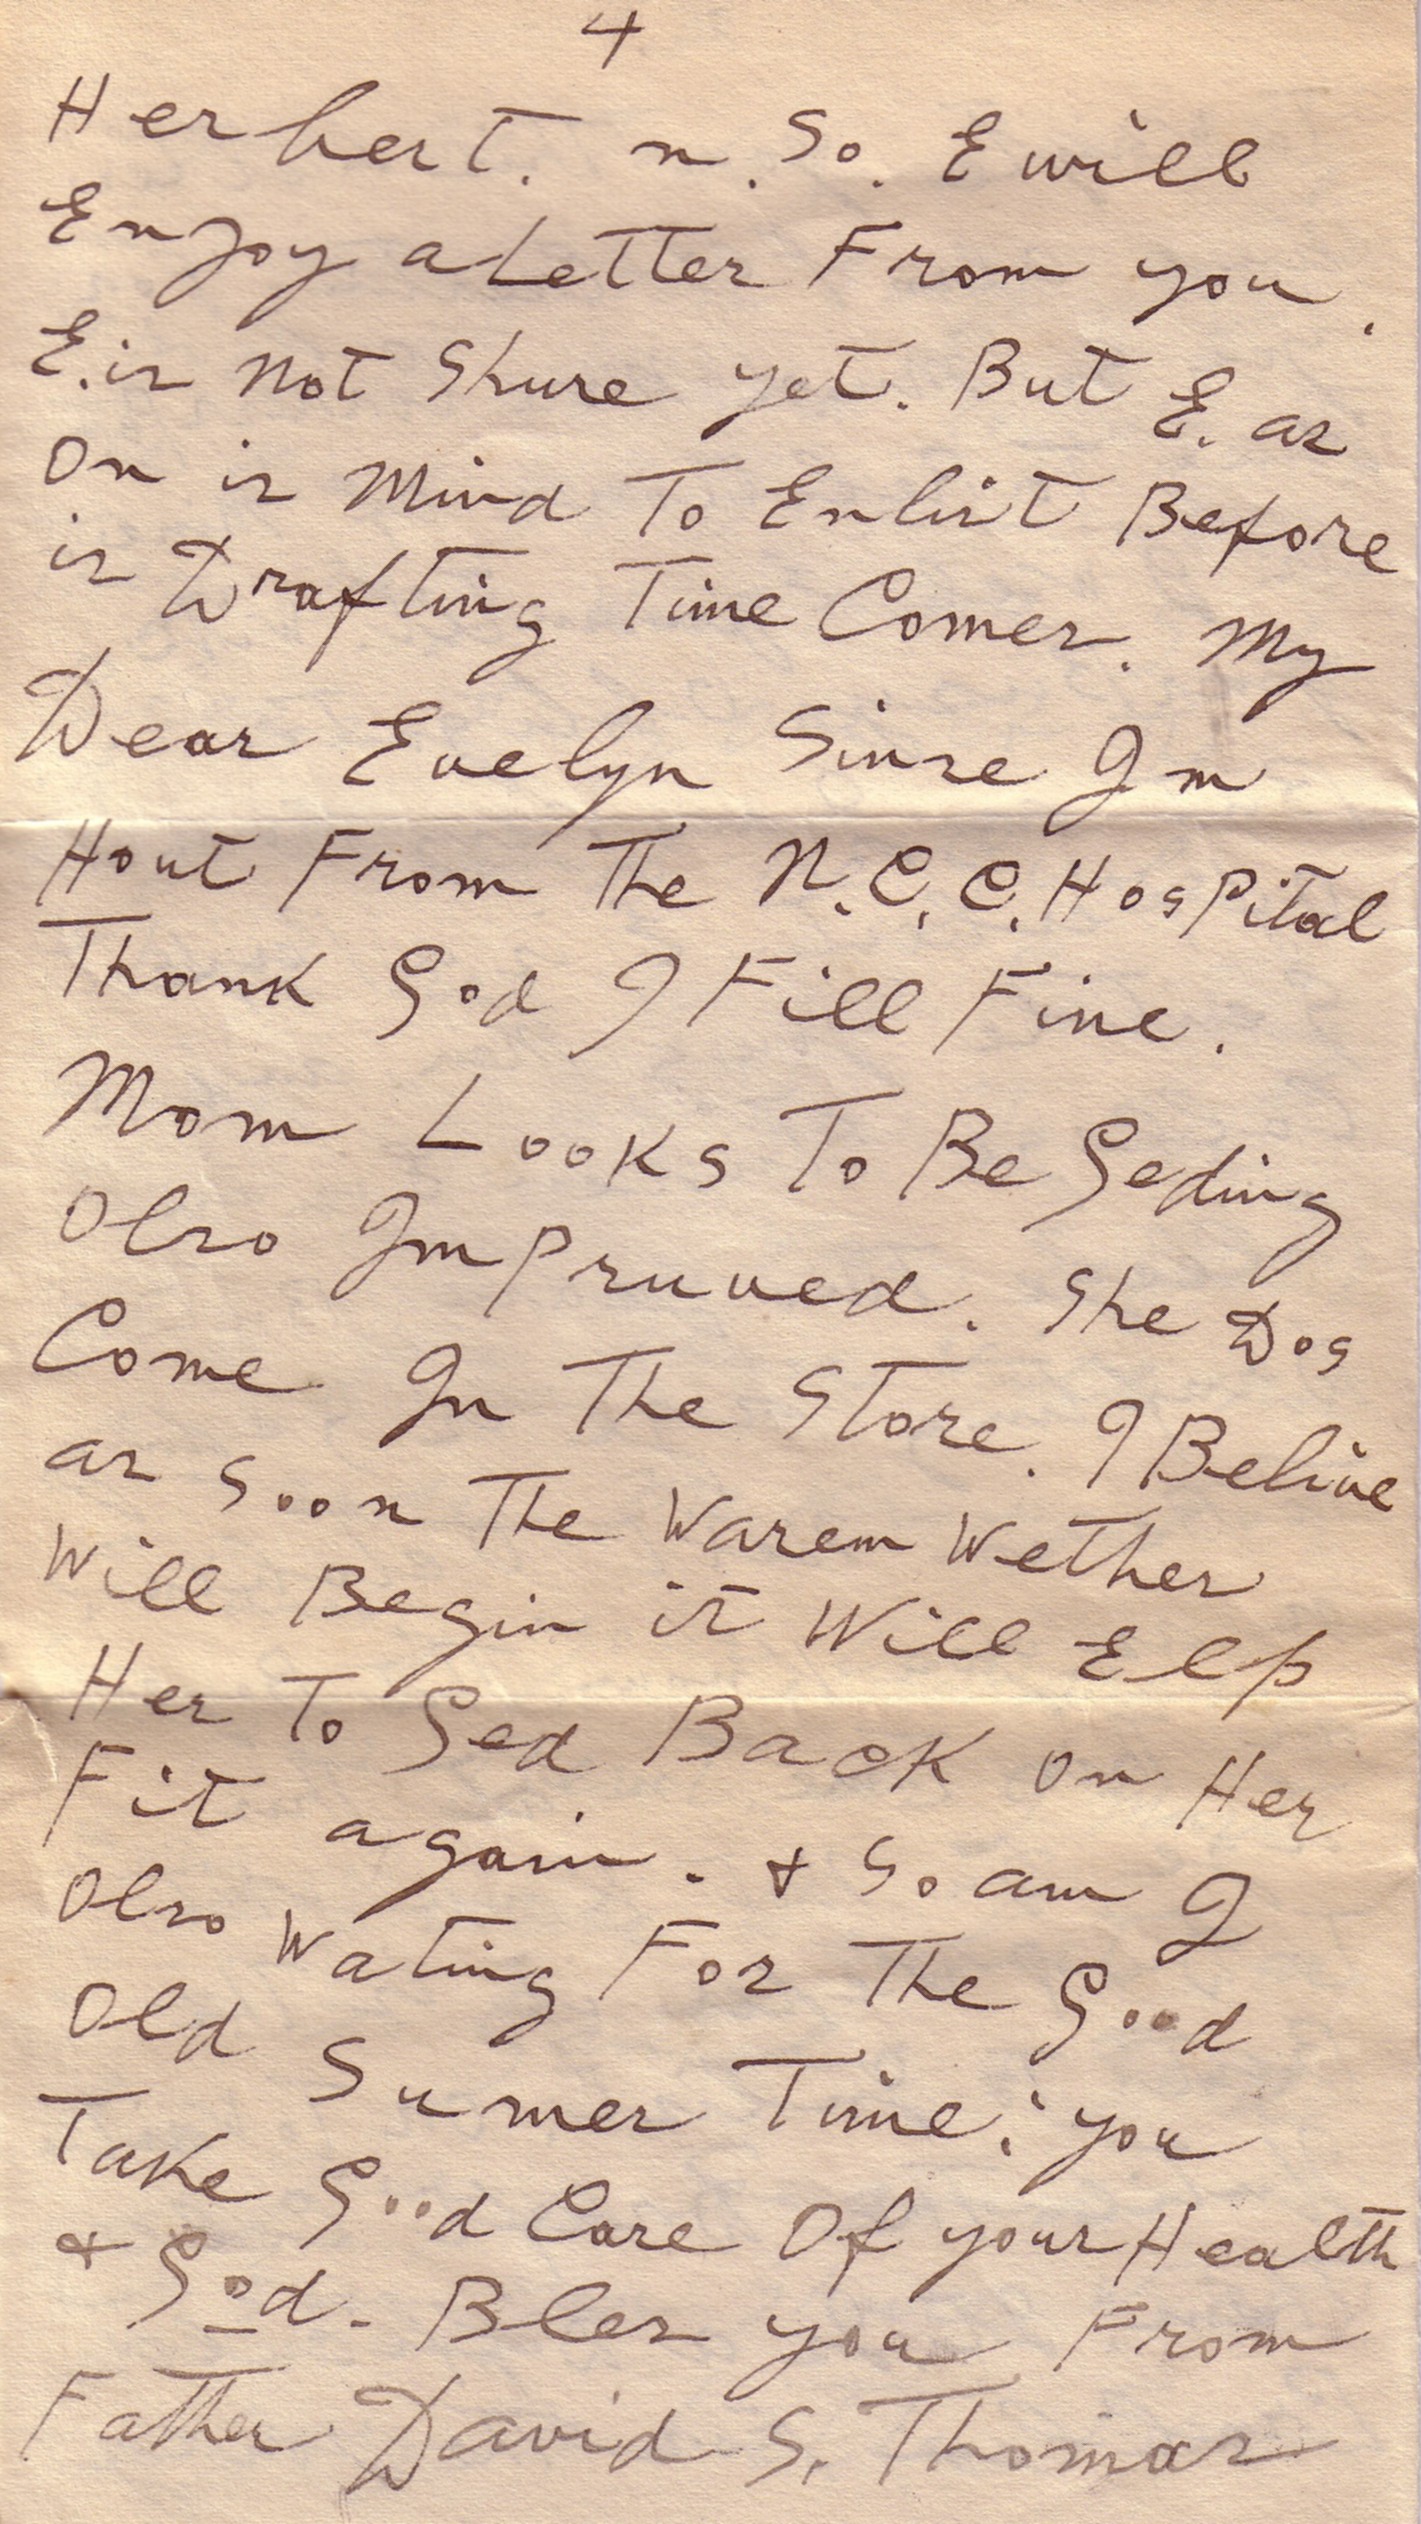 4
Herbert. n. So. E will
Enjoy a Letter From you.
E. is Not Shure yet. But E. as
On is Mind To Enlist Before
is Drafting Time Comes. My
Dear Evelyn Since Im
Hout From The N.C.C. Hospital
Thank God I Fill Fine.
Mom Looks To Be Geding
Olso Impruved. She Dos
Come In The Store. I Belive
as soon The Warem Wether
Will Begin it Will Elp
Her To Ged Back On Her
Fit again. & So am I
Olso Wating For The Good
Old Sumer Time: you
Take Good Care Of your Health
& God. Bles you From
Father David S. Thomas